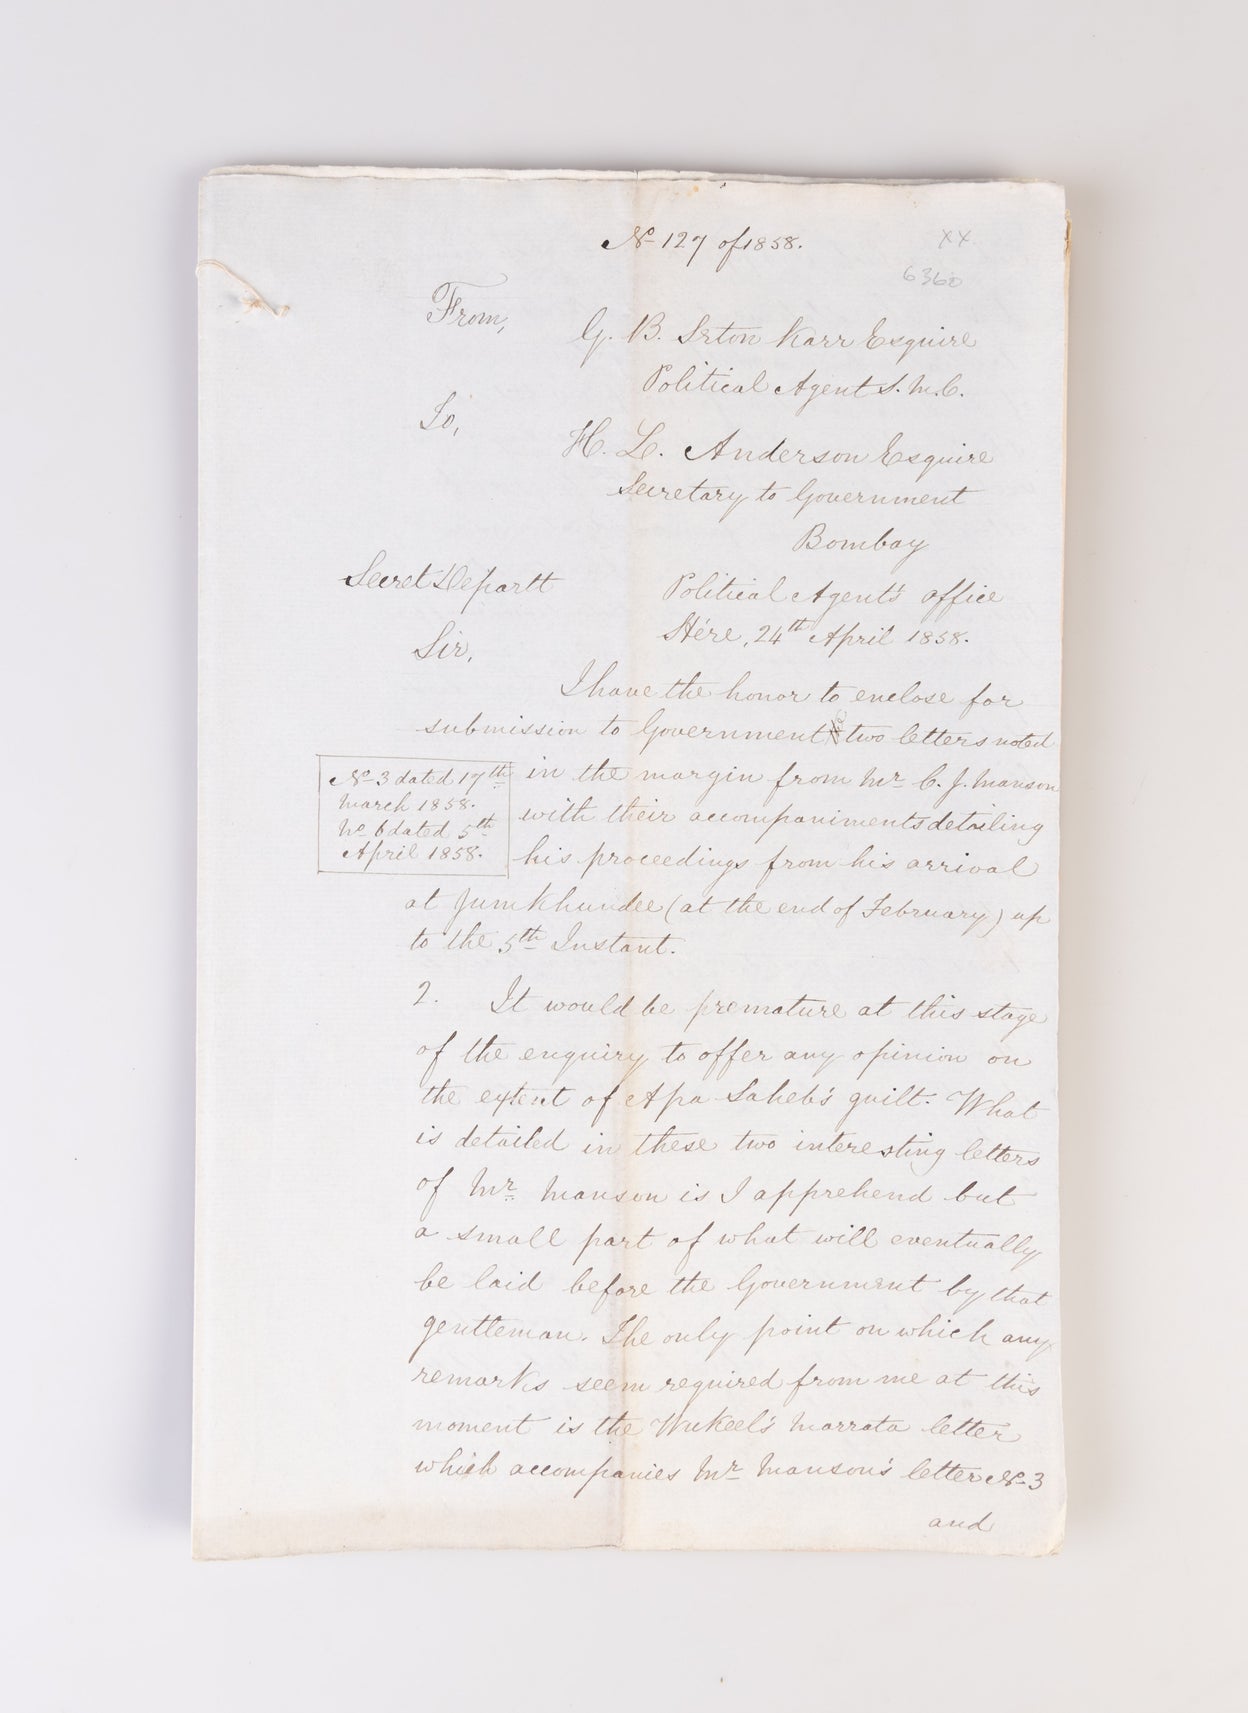 No 127 of 1858.
XX
6360
From,
G. B. Seton Karr Esquire
Political Agent S. M. C.
To,
H. L. Anderson Esquire
Secretary to Government
Bombay
Secret Departt
Political Agent's office
Hére, 24th April 1858.
Sir,
I have the honor to enclose for
submission to Government the two letters noted
No 3 dated 17th
March 1858.
No 6 dated 5th
April 1858.
in the margin from Mr C. J. Manson
with their accompaniments detailing
his proceedings from his arrival
at Jumkhundee (at the end of February) up
to the 5th Instant.
2. It would be premature at this stage
of the enquiry to offer any opinion on
the extent of Apa Saheb's guilt. What
is detailed in these two interesting letters
of Mr Manson is I apprehend but
a small part of what will eventually
be laid before the Government by that
gentleman. The only point on which any
remarks seem required from me at this
moment is the Wukeel's Marrata letter
which accompanies Mr Manson's letter No 3
and